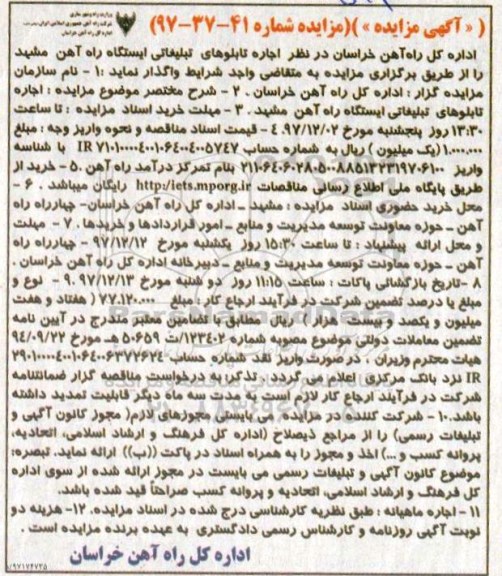 وزارت راه و شهرسازی
شرکت راه آهن جمهوری اسلامی ایران
اداره کل راه آهن خراسان
( « آگهی مزایده » )(مزایده شماره ۴۱-۳۷-۹۷)
اداره کل راه‌آهن خراسان در نظر اجاره تابلوهای تبلیغاتی ایستگاه راه آهن مشهد
را از طریق برگزاری مزایده به متقاضی واجد شرایط واگذار نماید :۱ - نام سازمان
مزایده گزار : اداره کل راه آهن خراسان . ۲ - شرح مختصر موضوع مزایده : اجاره
تابلوهای تبلیغاتی ایستگاه راه آهن مشهد . ۳ - مهلت خرید اسناد مزایده : تا ساعت
۱۳:۳۰ روز پنجشنبه مورخ ۹۷/۱۲/۰۲. ۴ - قیمت اسناد مناقصه و نحوه واریز وجه : مبلغ
۱.۰۰۰.۰۰۰ (یک میلیون ) ریال به شماره حساب IR ۷۱۰۱۰۰۰۰۴۰۰۱۰۶۴۰۰۴۰۰۵۷۴۷ با شناسه
واریز ۲۱۱۰۶۴۰۶۰۲۸۰۵۰۰۸۸۵۱۳۲۳۱۹۷۰۶۱۰۰ بنام تمرکز درآمد راه آهن .۵ - خرید از
طریق پایگاه ملی اطلاع رسانی مناقصات http:/iets.mporg.ir رایگان میباشد . ۶ -
محل خرید حضوری اسناد مزایده : مشهد - اداره کل راه آهن خراسان- چهارراه راه
آهن - حوزه معاونت توسعه مدیریت و منابع - امور قراردادها و خریدها . ۷ - مهلت
و محل ارائه پیشنهاد : تا ساعت ۱۵:۳۰ روز یکشنبه مورخ ۹۷/۱۲/۱۲ - چهارراه راه
آهن - حوزه معاونت توسعه مدیریت و منابع - دبیرخانه اداره کل راه آهن خراسان .
۸ -تاریخ بازگشائی پاکات : ساعت ۱۱:۱۵ روز دو شنبه مورخ ۹۷/۱۲/۱۳. ۹ - نوع و
مبلغ یا درصد تضمین شرکت در فرآیند ارجاع کار : مبلغ ۷۷.۱۲۰.۰۰۰ ( هفتاد و هفت
میلیون و یکصد و بیست هزار ) ریال مطابق با تضامین معتبر مندرج در آیین نامه
تضمین معاملات دولتی موضوع مصوبه شماره ۱۲۳۴۰۲/ت ۵۰۶۵۹ هـ مورخ ۹۴/۰۹/۲۲
هیات محترم وزیران ، در صورت واریز نقد شماره حساب ۲۹۰۱۰۰۰۰۴۰۰۱۰۶۴۰۰۶۳۷۷۶۲۴
IR نزد بانک مرکزی اعلام می گردد. تذکر: به درخواست مناقصه گزار ضمانتنامه
شرکت در فرآیند ارجاع کار لازم است به مدت سه ماه دیگر قابلیت تمدید داشته
باشد.۱۰ - شرکت کننده در مزایده می بایستی مجوزهای لازم( مجوز کانون آگهی و
تبلیغات رسمی) را از مراجع ذیصلاح (اداره کل فرهنگ و ارشاد اسلامی، اتحادیه،
پروانه کسب و ...) اخذ و مجوز را به همراه اسناد در پاکت ((ب)) ارائه نماید. تبصره:
موضوع کانون آگهی و تبلیغات رسمی می بایست در مجوز ارائه شده از سوی اداره
کل فرهنگ و ارشاد اسلامی، اتحادیه و پروانه کسب صراحتاً قید شده باشد.
۱۱ - اجاره ماهیانه : طبق نظریه کارشناسی درج شده در اسناد مزایده. ۱۲- هزینه دو
نوبت آگهی روزنامه و کارشناس رسمی دادگستری به عهده برنده مزایده است .
اداره کل راه آهن خراسان
/۹۷۱۷۴۷۳۵